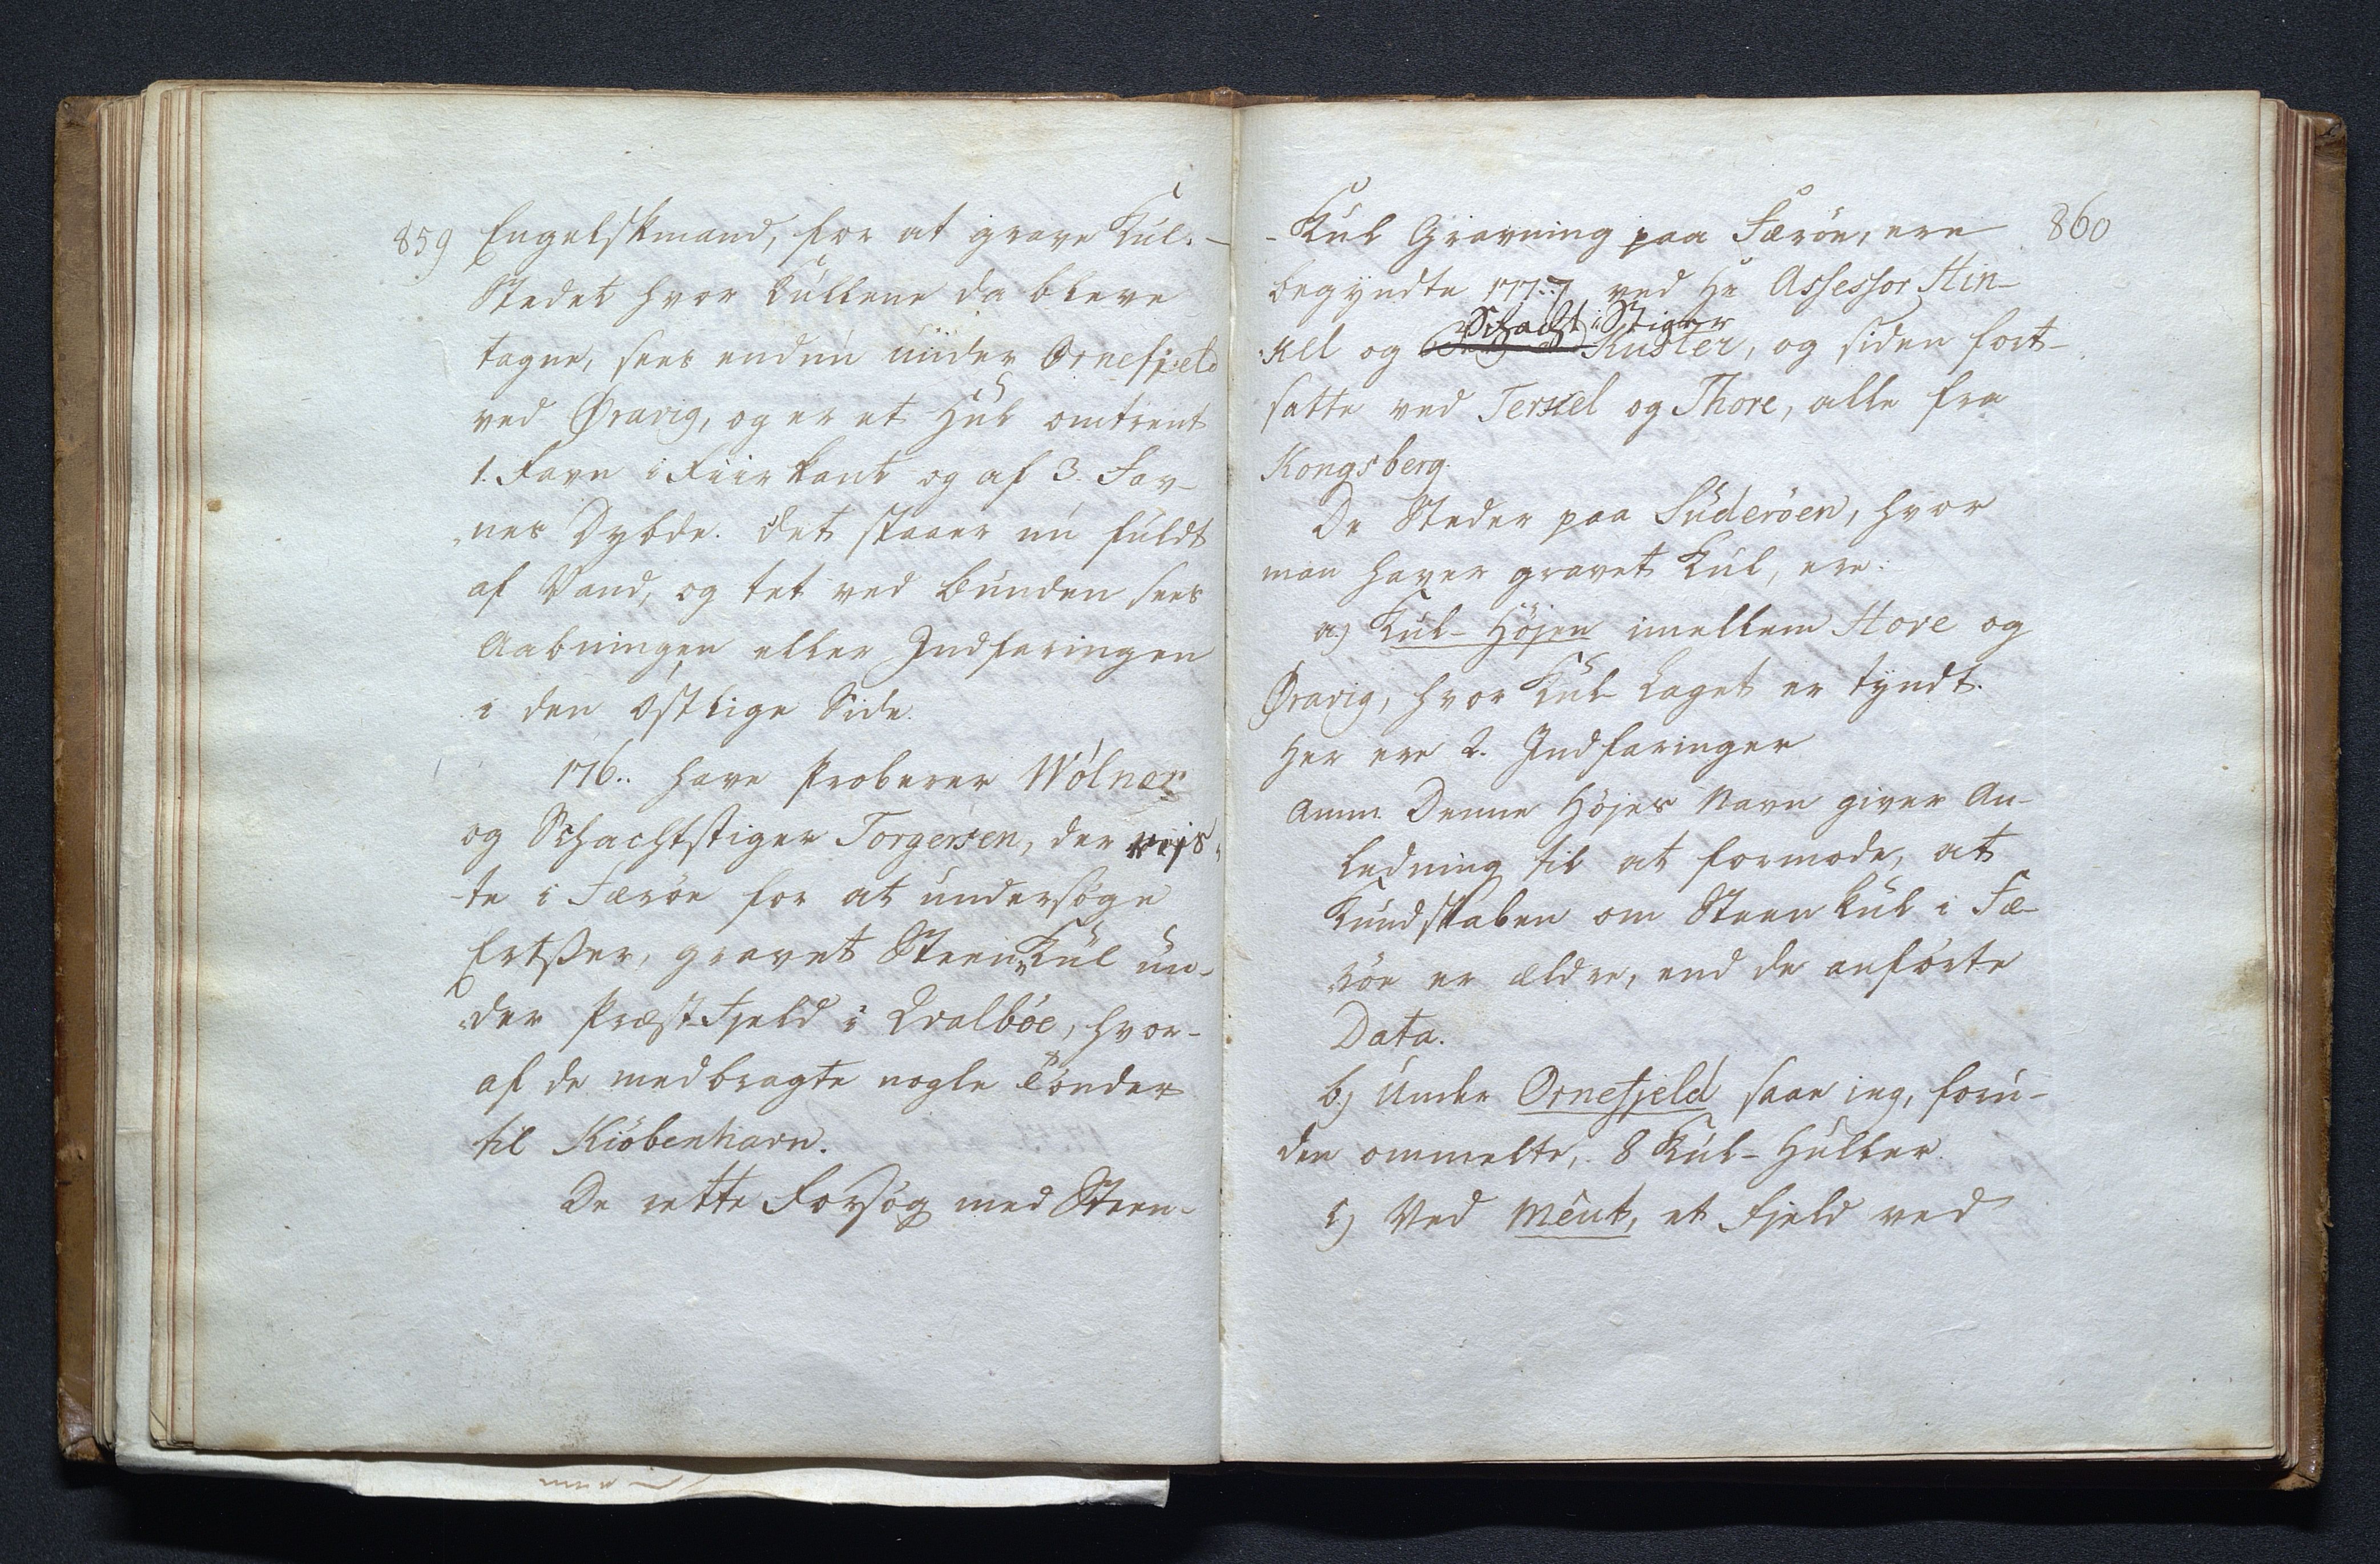 859
Engelskmand, for at grave Kul. -
Stedet hvor Kullene da bleve
tagne, sees endnu under Ornefjeld
ved Øravig, og er et Hul omtrent
1. Favn i Fiirkant og af 3. Fav-
nes Dybde. Det staaer nu fuldt
af Vand, og tet ved Bunden sees
Aabningen eller Indfaringen
i den Østlige Side.
176.. have Proberer Wölner
og Schachtstiger Torgersen, der reis-
-te i Færöe for at undersöge
Ertzer, gravet Steen-Kul un-
der Præst-Fjeld i Qvalböe, hvor-
af de medbragte nogle Tönder
til Kiöbenhavn.
De rette Forsög med Steen-
860
-Kul Gravning paa Færöe, ere
begyndte 1777 ved Hr Assessor Hin-
Schacht-Stiger
kel og Kuster, og siden fort-
satte ved Terkel og Thore, alle fra
Kongsberg.
De Steder paa Suderöen, hvor
man haver gravet Kul, ere:
a.) Kul-Höjen imellem Hove og
Øravig, hvor Kul-Laget er tyndt.
Her ere 2. Indfaringer
Anm. Denne Höjes Navn giver An-
ledning til at formode, at
Kundskaben om Steenkul i Fæ-
röe er ældre, end de anförte
Data.
b.) Under Ornefjeld saae ieg, foru-
den ommelte, 8 Kul-Huller.
c) Ved Meut, et Fjeld ved